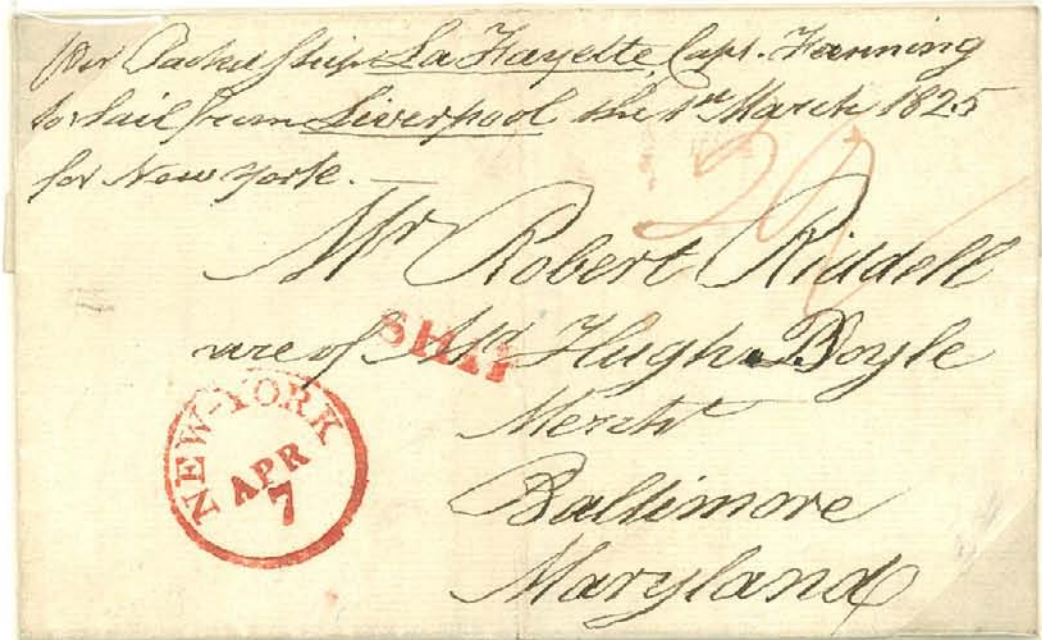 Per Packet Ship La Fayette, Capt. Fanning
to sail from Liverpool the 1st March 1825
for New York.—
20½
Mr Robert Riddell
SHIP
care of Mr Hugh Boyle
Mercht
Baltimore
Maryland
NEW-YORK
APR
7